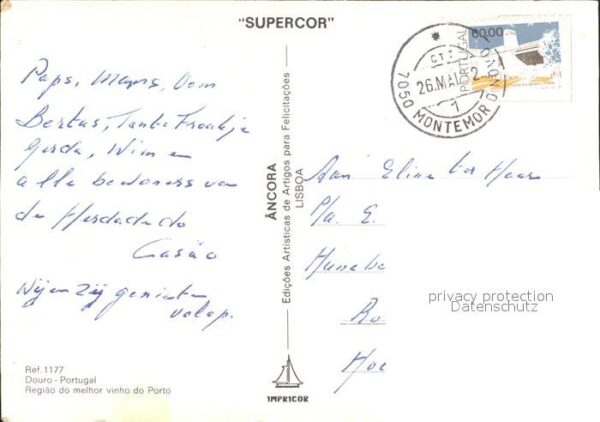 "SUPERCOR"
Paps, Mams, Oom
Bertus, Tante Froukje
Gerda, Wim en
alle bewoners van
de Herdade do
Casão
Wij en zij genieten
volop.
Ref. 1177
Douro - Portugal
Região do melhor vinho do Porto
ÂNCORA
Edições Artísticas de Artigos para Felicitações
LISBOA
IMPRICOR
PORTUGAL
60,00
C.T.
26.MAI.
2
1
7050 MONTEMOR O NOVO
Aan Elina ter Haar
P/a E.
Huneba
Ro
Hoe
privacy protection
Datenschutz